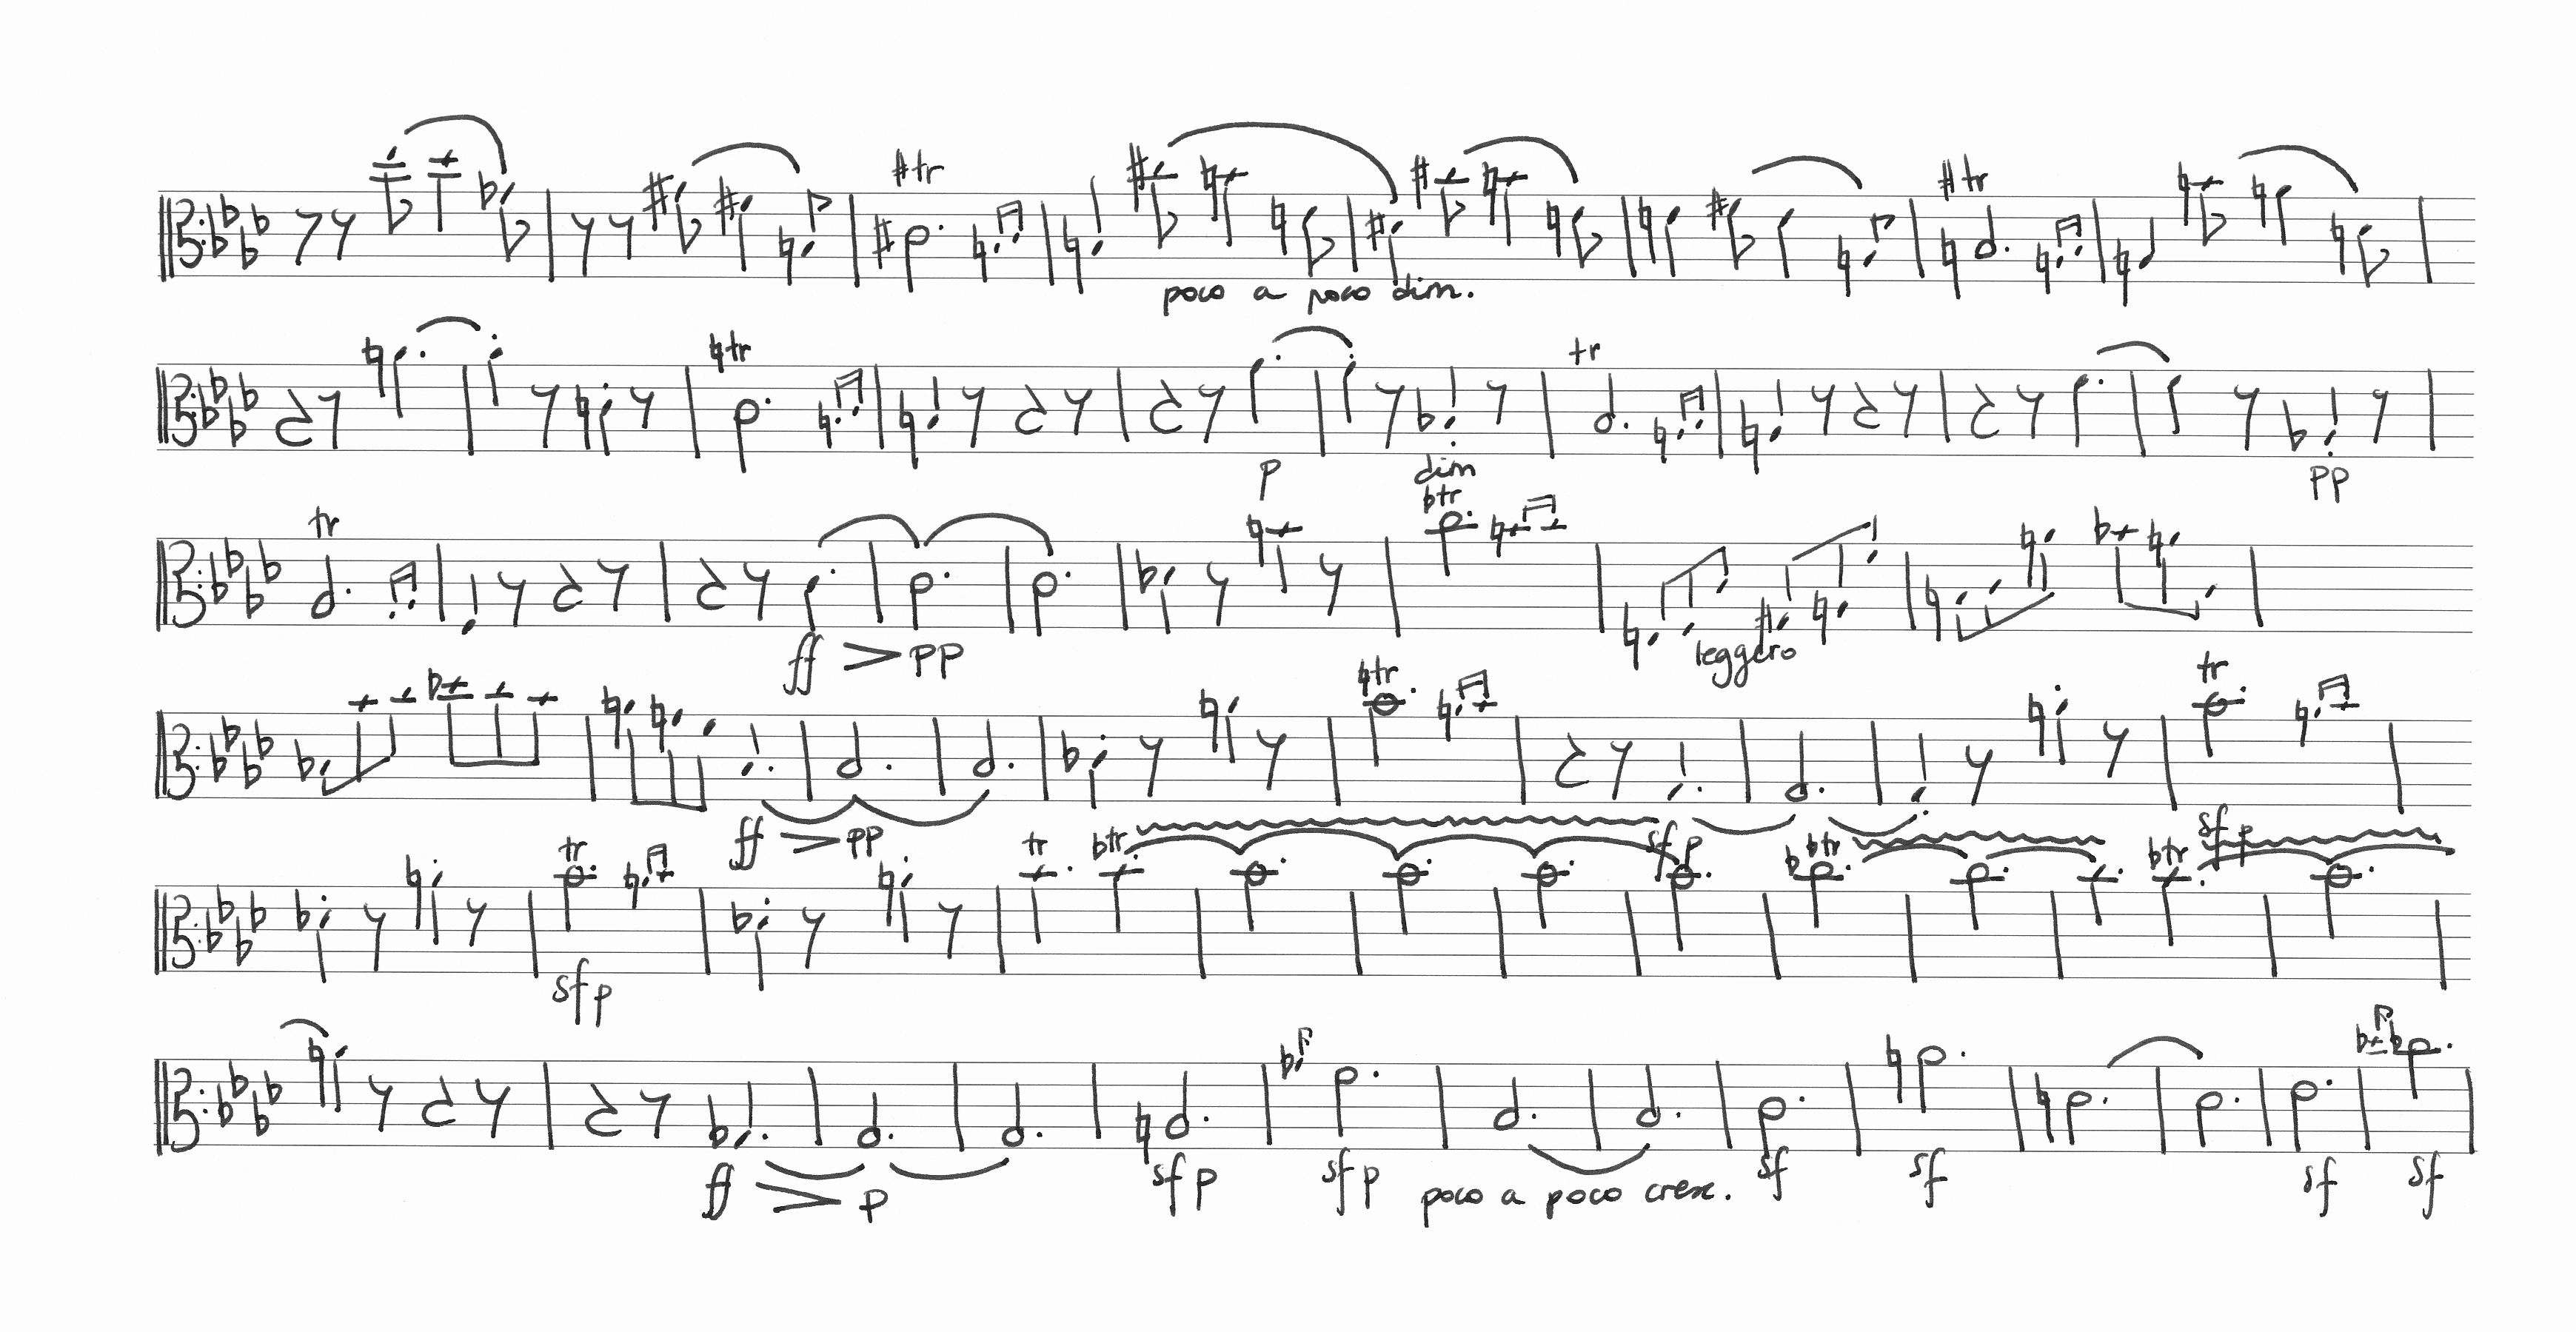 tr
poco a poco dim.
tr
tr
tr
p
dim
pp
tr
tr
ff pp
leggero
tr
tr
ff pp
sfp
sfp
tr
sfp
tr
tr
tr
tr
ff p
sfp
sfp
poco a poco cresc.
sf
sf
sf
sf